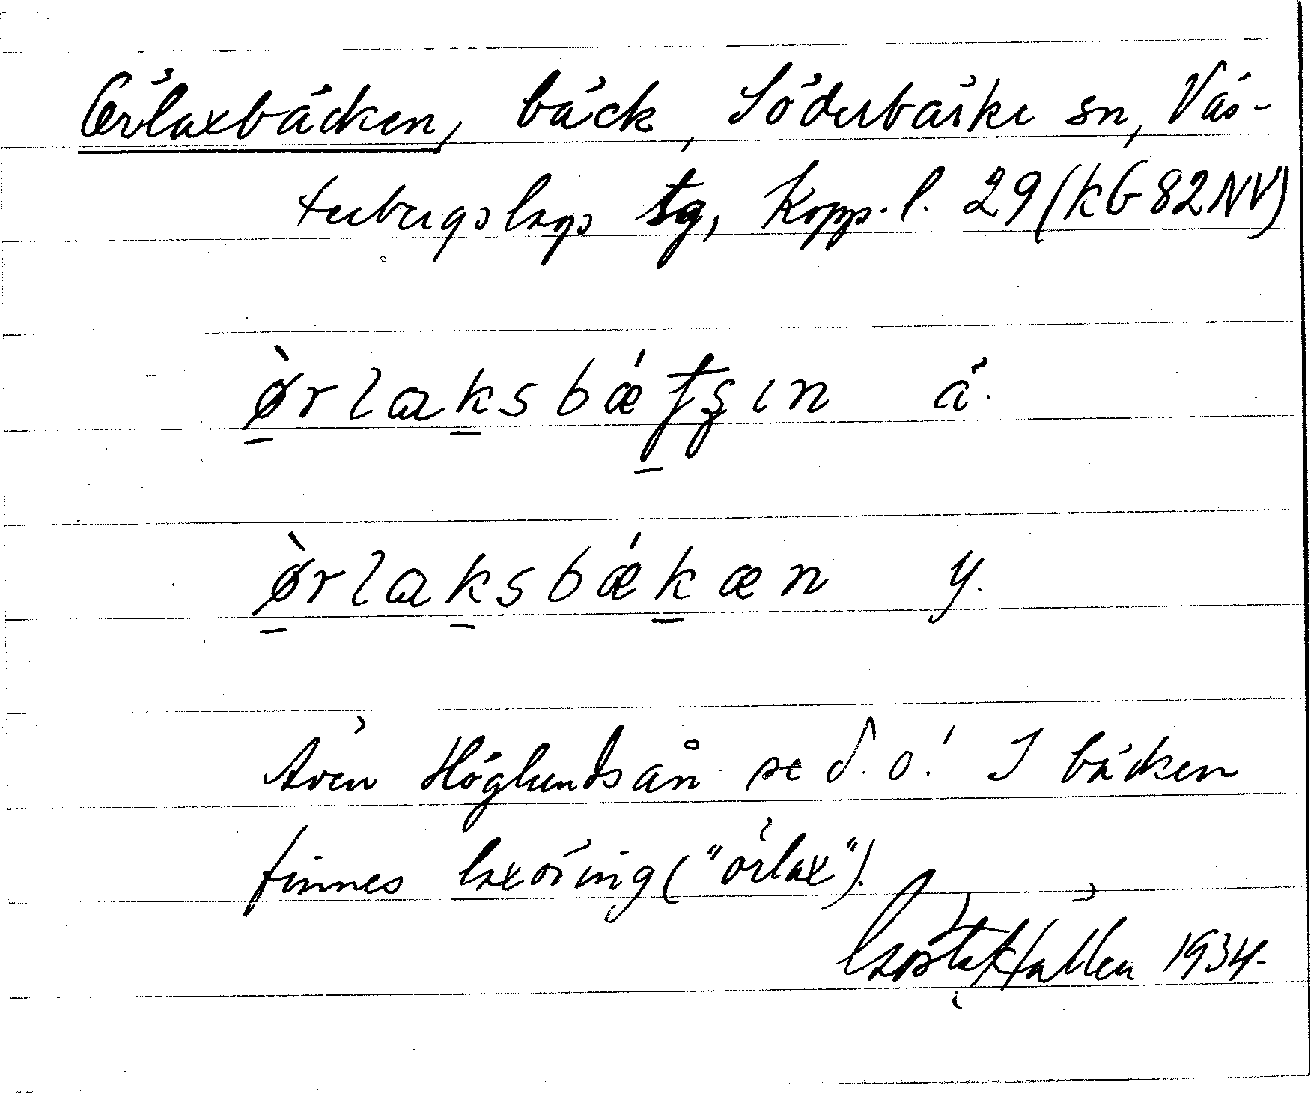 Örlaxbäcken, bäck, Söderbärke sn, Väs-
terbergslags tg, Kopp. l. 29 (kG 82NV)
ø̀rlaksbǽʈʂın ä.
ø̀rlaksbǽkæn y.
Även Höglundsån se d. o! I bäcken
finnes laxöring ("örlax").
Gösta Hallén 1934.